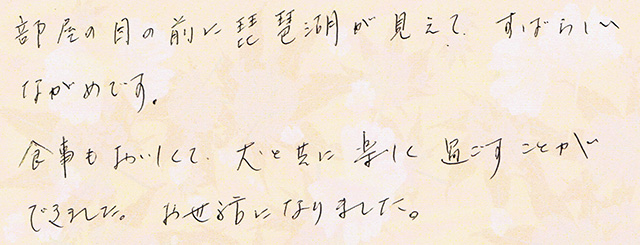 部屋の目の前に琵琶湖が見えて、すばらしい
ながめです。
食事もおいしくて、犬と共に楽しく過ごすことが
できました。お世話になりました。